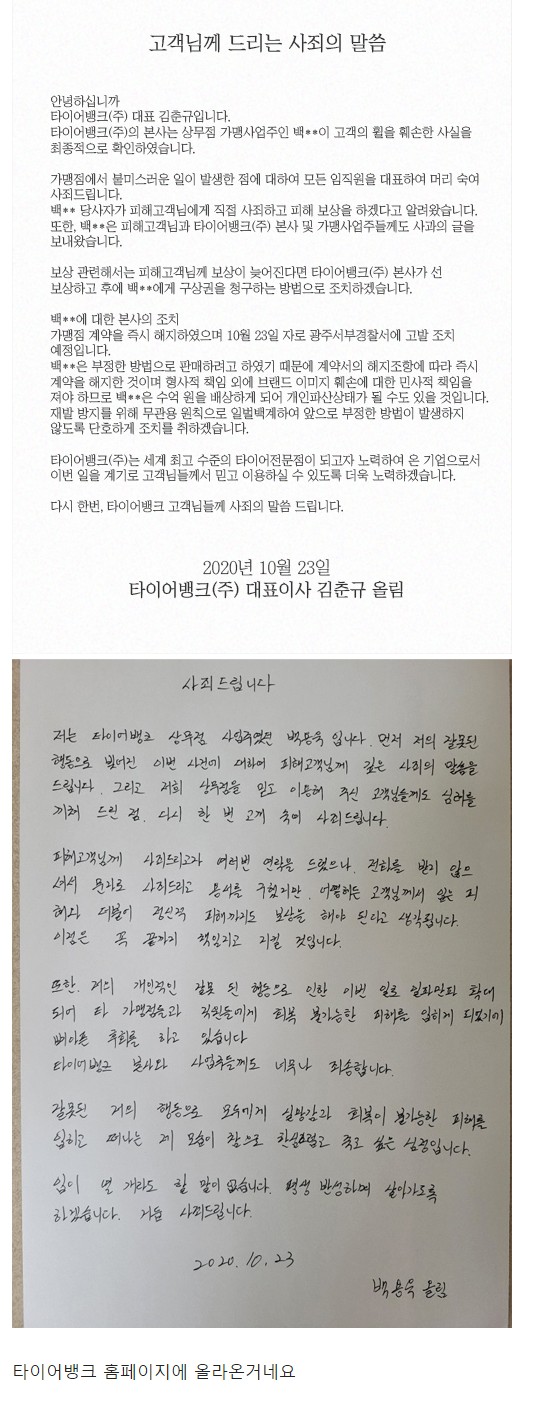 고객님께 드리는 사죄의 말씀
안녕하십니까
타이어뱅크(주) 대표 김춘규입니다.
타이어뱅크(주)의 본사는 상무점 가맹사업주인 백**이 고객의 휠을 훼손한 사실을
최종적으로 확인하였습니다.
가맹점에서 불미스러운 일이 발생한 점에 대하여 모든 임직원을 대표하여 머리 숙여
사죄드립니다.
백** 당사자가 피해고객님에게 직접 사죄하고 피해 보상을 하겠다고 알려왔습니다.
또한, 백**은 피해고객님과 타이어뱅크(주) 본사 및 가맹사업주들께도 사과의 글을
보내왔습니다.
보상 관련해서는 피해고객님께 보상이 늦어진다면 타이어뱅크(주) 본사가 선
보상하고 후에 백**에게 구상권을 청구하는 방법으로 조치하겠습니다.
백**에 대한 본사의 조치
가맹점 계약을 즉시 해지하였으며 10월 23일 자로 광주서부경찰서에 고발 조치
예정입니다.
백**은 부정한 방법으로 판매하려고 하였기 때문에 계약서의 해지조항에 따라 즉시
계약을 해지한 것이며 형사적 책임 외에 브랜드 이미지 훼손에 대한 민사적 책임을
져야 하므로 백**은 수억 원을 배상하게 되어 개인파산상태가 될 수도 있을 것입니다.
재발 방지를 위해 무관용 원칙으로 일벌백계하여 앞으로 부정한 방법이 발생하지
않도록 단호하게 조치를 취하겠습니다.
타이어뱅크(주)는 세계 최고 수준의 타이어전문점이 되고자 노력하여 온 기업으로서
이번 일을 계기로 고객님들께서 믿고 이용하실 수 있도록 더욱 노력하겠습니다.
다시 한번, 타이어뱅크 고객님들께 사죄의 말씀 드립니다.
2020년 10월 23일
타이어뱅크(주) 대표이사 김춘규 올림
사죄드립니다
저는 타이어뱅크 상무점 사업주였던 백용욱 입니다. 먼저 저의 잘못된
행동으로 빚어진 이번 사건에 대하여 피해고객님께 깊은 사죄의 말씀을
드립니다. 그리고 저희 상무점을 믿고 이용해 주신 고객님들께도 심려를
끼쳐 드린 점. 다시 한 번 고개 숙여 사죄드립니다.
피해고객님께 사죄드리고자 여러번 연락을 드렸으나, 전화를 받지 않으
셔서 문자로 사죄드리고 용서를 구했지만, 어떻게든 고객님께서 입은 피
해와 더불어 정신적 피해까지도 보상을 해야 된다고 생각됩니다.
이점은 꼭 끝까지 책임지고 지킬 것입니다.
또한. 저의 개인적인 잘못 된 행동으로 인한 이번 일로 일파만파 확대
되어 타 가맹점들과 직원들에게 회복 불가능한 피해를 입히게 되었기에
뼈아픈 후회를 하고 있습니다
타이어뱅크 본사와 사업주들께도 너무나 죄송합니다.
잘못된 저의 행동으로 모두에게 실망감과 회복이 불가능한 피해를
입히고 떠나는 제 모습이 참으로 한심스럽고 죽고 싶은 심정입니다.
입이 열 개라도 할 말이 없습니다. 평생 반성하며 살아가도록
하겠습니다. 거듭 사죄드립니다.
2020.10.23
백용욱 올림
타이어뱅크 홈페이지에 올라온거네요